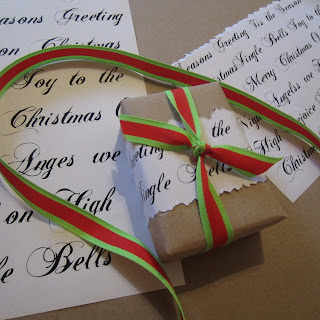 easons Greeting
on Christmas
Joy to the
Christmas
Anges we
on High
Bells
easons Greeting Tis the Season
Jingle Bells Joy to
Merry Christmas O
Angelss we
High
Christmas
the
ingle Bells